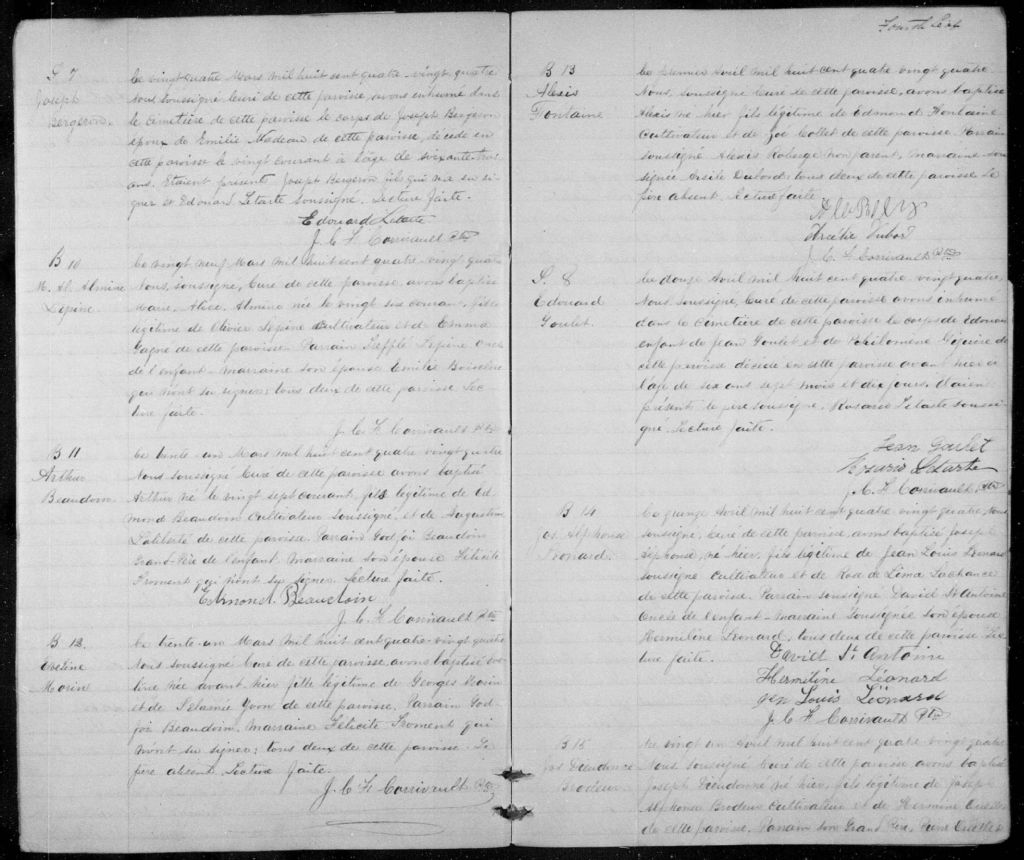 S 7
Joseph
Bergeron
Le vingt quatre Mars mil huit cent quatre-vingt quatre
Nous soussigné Curé de cette paroisse, avons inhumé dans
le cimetière de cette paroisse le corps de Joseph Bergeron
époux de Emilie Nadeau de cette paroisse, décédé en
cette paroisse le vingt courant à l'âge de soixante-trois
ans. Etaient présents Joseph Bergeron fils qui n'a su si-
gner et Edouard Letarte soussigné. Lecture faite.
Edouard Letarte
J. C. H. Corrivault Ptre
B 10
M. A. Almina
Lépine.
Le vingt neuf Mars mil huit cent quatre-vingt quatre
Nous, soussigné, Curé de cette paroisse, avons baptisé
Marie, Alice, Almina née le vingt six courant, fille
légitime de Olivier Lépine Cultivateur et de Emma
Gagné de cette paroisse. Parrain Zéffle Lépine oncle
de l'enfant marraine son épouse Emilie
qui n'ont su signer; tous deux de cette paroisse. Lec-
ture faite.
J. C. H. Corrivault Ptre
B 11
Arthur
Beaudoin
Le trente-un Mars mil huit cent quatre vingt quatre
Nous soussigné Curé de cette paroisse avons baptisé
Arthur né le vingt sept courant, fils légitime de Ed
mond Beaudoin Cultivateur soussigné, et de Augustine
Laliberté de cette paroisse. Parrain Godfoi Beaudoin
Grand-Père de l'enfant. Marraine son épouse Félicité
Froment qui n'ont su signer. Lecture faite.
Edmond Beaudoin
J. C. H. Corrivault Ptre
B 12.
Morin
Le trente-un Mars mil huit cent quatre-vingt quatre
Nous soussigné Curé de cette paroisse avons baptisé
née avant-hier fille légitime de Georges Morin
et de Yvon de cette paroisse. Parrain God
foi Beaudoin, Marraine Félicité Froment qui
n'ont su signer; tous deux de cette paroisse. Le
père absent. Lecture faite.
J. C. H. Corrivault Ptre
Fourth
B 13
Alexis
Fontaine
Le premier Avril mil huit cent quatre vingt quatre
Nous, soussigné Curé de cette paroisse, avons baptisé
Alexis né hier, fils légitime de Edmond Fontaine
Cultivateur et de Zoé Nollet de cette paroisse. Parrain
soussigné Alexis Roberge non parent, Marraine sous
signée Dubord; tous deux de cette paroisse Le
père absent. Lecture faite
Dubord
J. C. H. Corrivault Ptre
S. 8
Edouard
Goulet.
Le douze Avril mil huit cent quatre vingt quatre,
Nous soussigné, Curé de cette paroisse avons inhumé
dans le cimetière de cette paroisse le corps de Edouard
enfant de Jean Goulet et de Philomène Giguère de
cette paroisse décédé en cette paroisse avant hier à
l'âge de six ans sept mois et dix jours. Etaient
présents le père soussigné. Rosario Letarte soussi-
gné. Lecture faite.
Jean Goulet
Rosario Letarte
J. C. H. Corrivault Ptre
B 14
Jos Alphonse
Léonard.
Le quinze Avril mil huit cent quatre vingt quatre, Nous
soussigné, Curé de cette paroisse, avons baptisé Joseph
Alphonse, né hier, fils légitime de Jean Louis Léonard
soussigné Cultivateur et de Rose de Lima Lachance
de cette paroisse. Parrain soussigné David St Antoine
Oncle de l'enfant. Marraine soussignée son épouse
Herméline Léonard, tous deux de cette paroisse. Lec
ture faite.
David St Antoine
Herméline Léonard
Jen Louis Léonard
J. C. H. Corrivault Ptre
B 15
Jos Dieudonné
Brodeur
Le vingt un Avril mil huit cent quatre vingt quatre
Nous soussigné Curé de cette paroisse avons baptisé
Joseph Dieudonné né hier, fils légitime de Joseph
Alphonse Brodeur Cultivateur et de Hermine
de cette paroisse. Parrain son Grand Père,